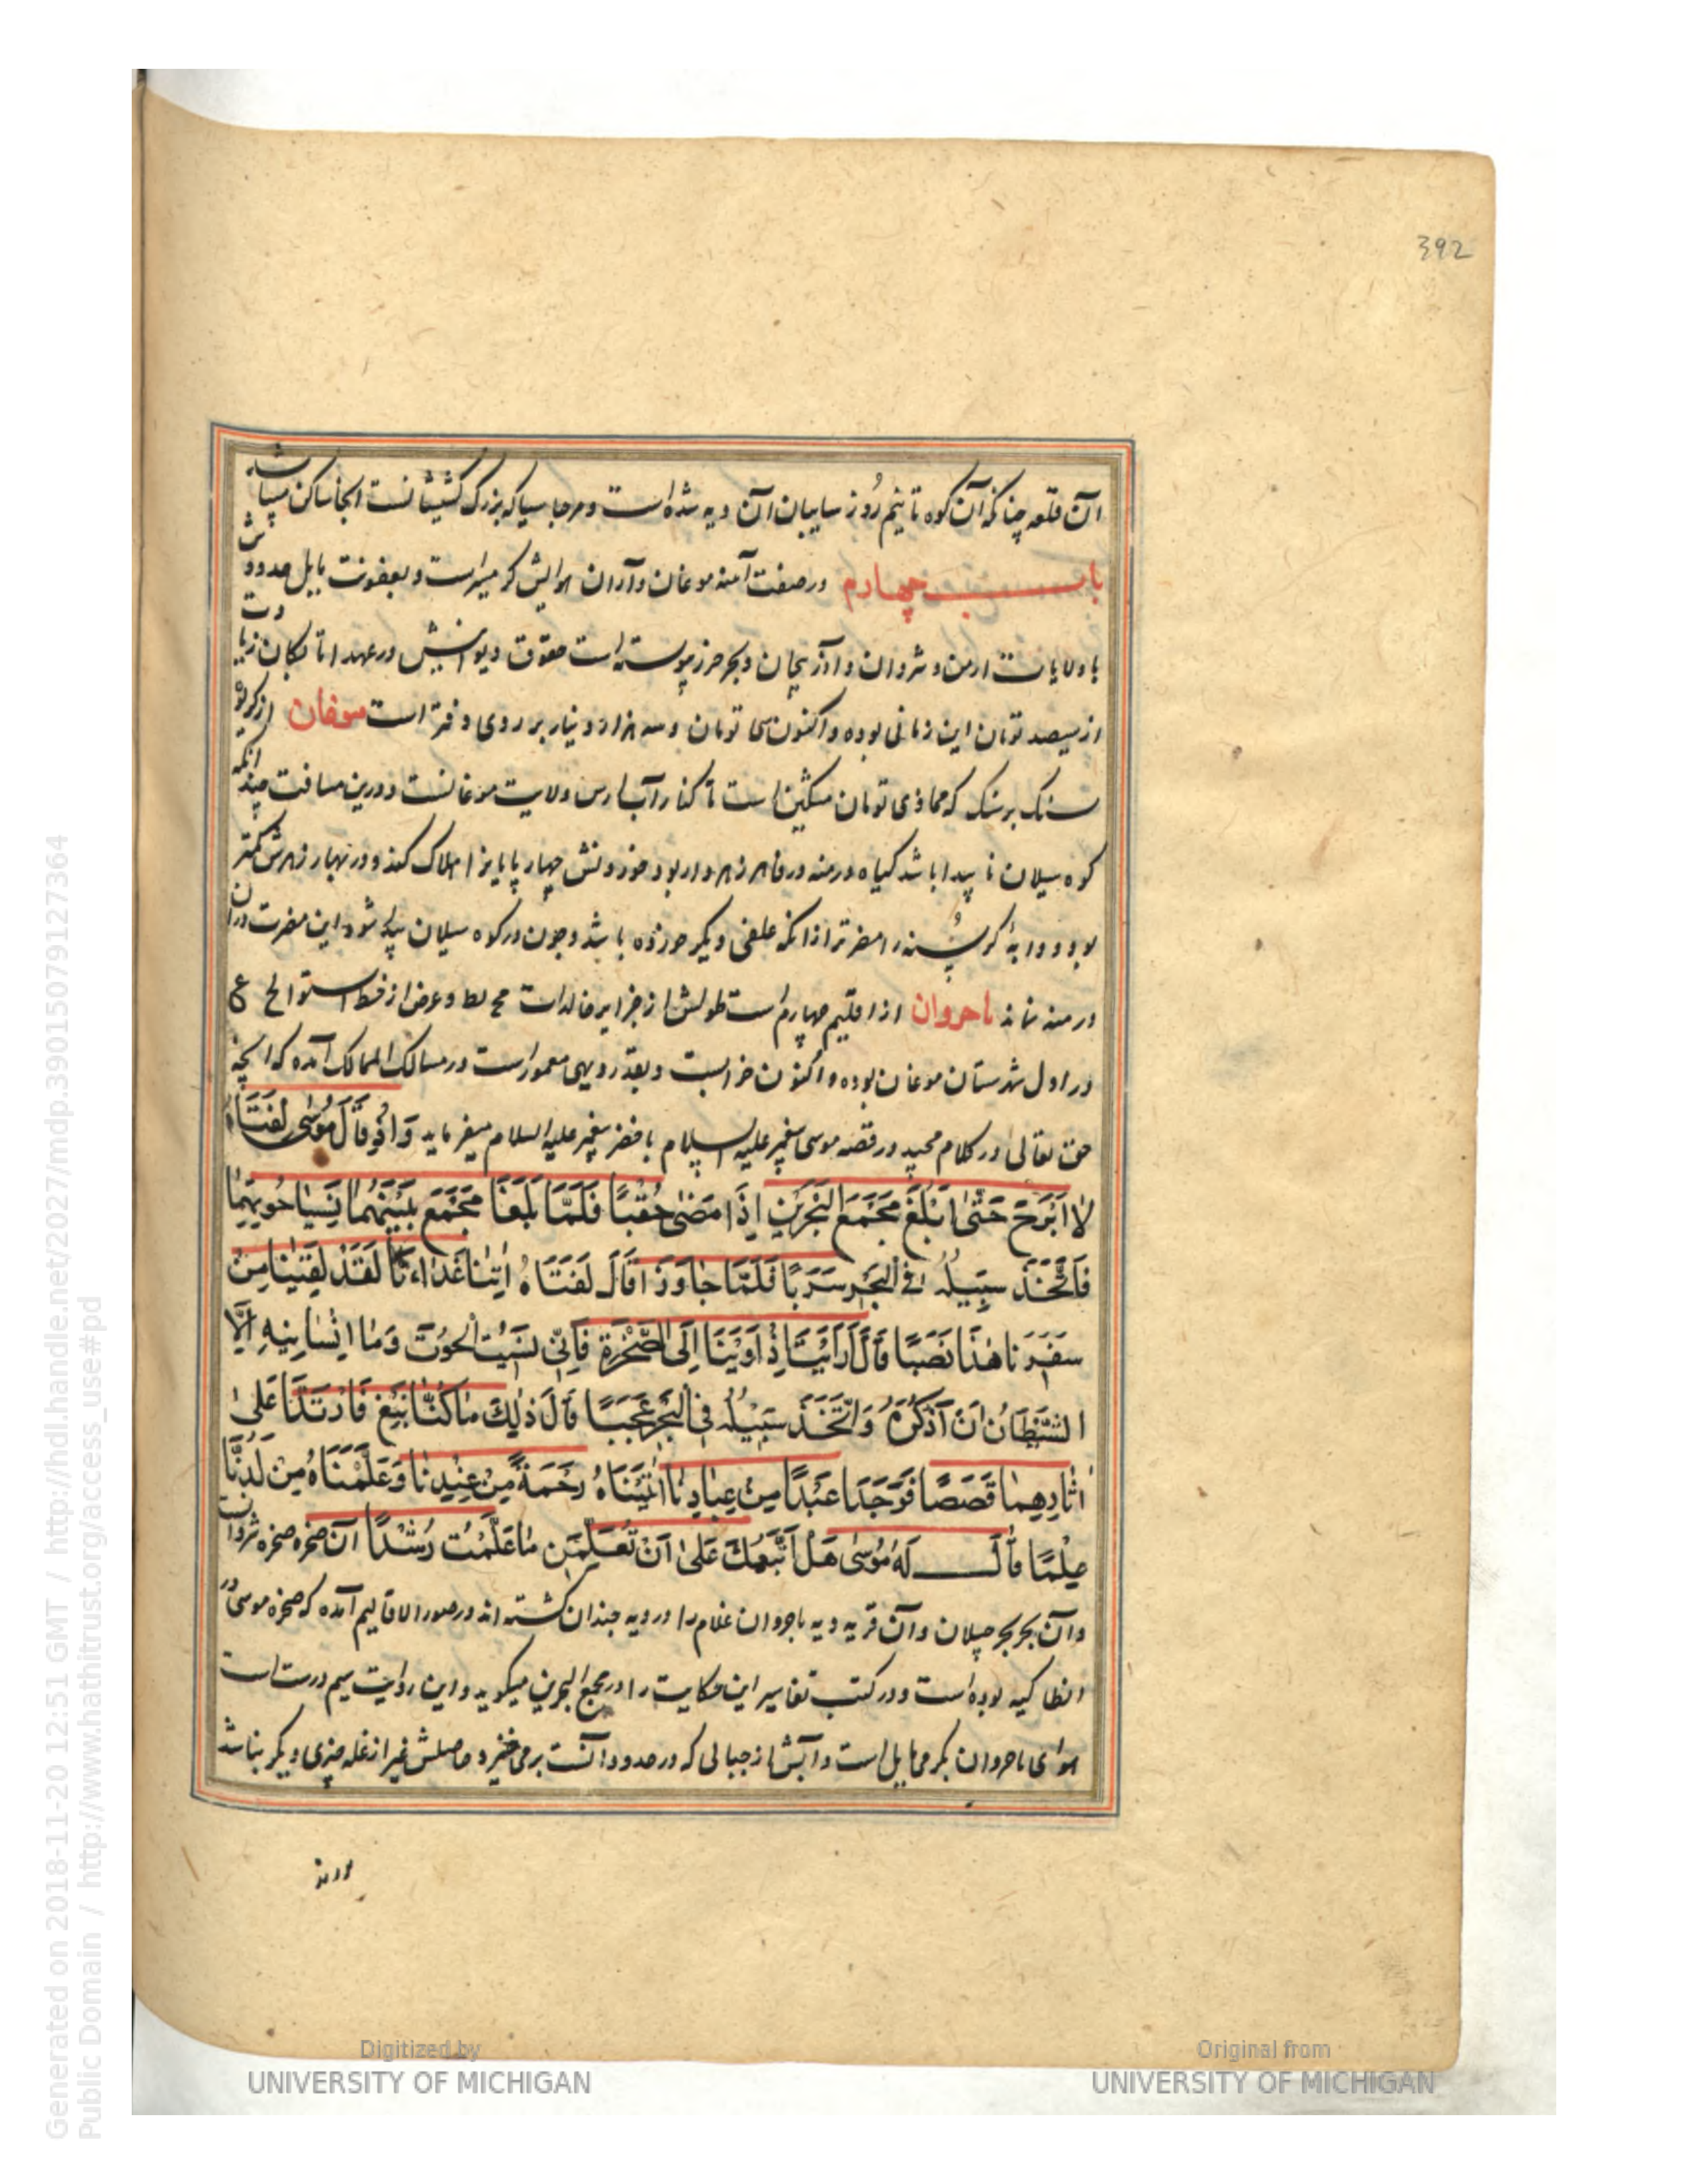 392
آن قلعه چنانکه آن کوه تا نیم روز سایبان آن دیه شده است و مرجاسیا که بزرک کشیشانست انجا ساکن میباشد
باب چهارم در صفت آمنه موغان و آران هوایش کرمسیر است و بعفونت مایل حدودش
با ولایات ارمن و شروان و آذربیجان و بحر خزر پیوسته است حقوق دیوانیش در عهد اتابکان زیادت
از سیصد تومان این زمانی بوده و اکنون سی تومان و سه هزار دینار بر روی دفتر است موغان از کریوه
سنک بر سنک که محاذی تومان مشکین است تا کنار آب ارس ولایت موغانست و درین مسافت چندانکه
کوه سیلان ناپیدا باشد کیاه درمنه در فاهر زهردار بود خوردنش چهارپایانرا هلاک کند و در بهار زهرش کمتر
بود و دابهٔ کرسنه را مضرتر از انکه علفی دیکر خورده باشد و چون در کوه سیلان پیدا شود این مضرت دران
درمنه نماند باجروان از اقلیم چهارم است طولش از جزایر خالدات مح لط و عرض از خط استوا لح ع
در اول شهرستان موغان بوده و اکنون خرابست و بقدر دیهی معمور است در مسالک الممالک آمده که انچه
حق تعالی در کلام مجید در قصه موسی پیغمبر علیه السلام با خضر پیغمبر علیه السلام میفرماید وَاِذْ قَالَ مُوسٰی لِفَتَاهُ
لَا اَبْرَحُ حَتّٰی اَبْلُغَ مَجْمَعَ الْبَحْرَیْنِ اِذَا مَضٰی حُقُبًا فَلَمَّا بَلَغَا مَجْمَعَ بَیْنِهِمَا نَسِیَا حُوتَهُمَا
فَاتَّخَذَ سَبِیلَهُ فِی الْبَحْرِ سَرَبًا فَلَمَّا جَاوَزَا قَالَ لِفَتَاهُ اٰتِنَا غَدَاءَنَا لَقَدْ لَقِینَا مِنْ
سَفَرِنَا هٰذَا نَصَبًا قَالَ اَرَاَیْتَ اِذْ اَوَیْنَا اِلَی الصَّخْرَةِ فَاِنِّی نَسِیتُ الْحُوتَ وَمَا اَنْسَانِیهِ اِلَّا
الشَّیْطَانُ اَنْ اَذْکُرَهُ وَاتَّخَذَ سَبِیلَهُ فِی الْبَحْرِ عَجَبًا قَالَ ذٰلِكَ مَا کُنَّا نَبْغِ فَارْتَدَّا عَلٰی
اٰثَارِهِمَا قَصَصًا فَوَجَدَا عَبْدًا مِنْ عِبَادِنَا اٰتَیْنَاهُ رَحْمَةً مِنْ عِنْدِنَا وَعَلَّمْنَاهُ مِنْ لَدُنَّا
عِلْمًا قَالَ لَهُ مُوسٰی هَلْ اَتَّبِعُكَ عَلٰی اَنْ تُعَلِّمَنِ مَا عُلِّمْتَ رُشْدًا آن صخره صخره شروانست
و آن بحر بحر جیلان و آن قریه دیه باجروان غلام را در دیه جندان کشته اند در صور الاقالیم آمده که صخره موسی در
انطاکیه بوده است و در کتب تفاسیر این حکایت را در مجمع البحرین میکوید و این روایت سیم درست است
هوای باجروان بکرمی مایل است و آبش از جبالی که در حدود آنست بر می خیزد حاصلش غیر از غله چیزی دیکر نباشد
Digitized by
UNIVERSITY OF MICHIGAN
Original from
UNIVERSITY OF MICHIGAN
Generated on 2018-11-20 12:51 GMT / http://hdl.handle.net/2027/mdp.39015079127364
Public Domain / http://www.hathitrust.org/access_use#pd